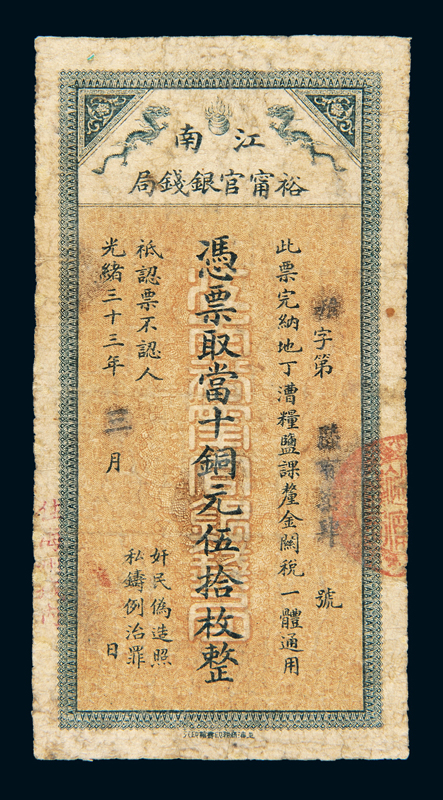 江南
裕甯官銀錢局
字第
號
此票完納地丁漕糧鹽課釐金關稅一體通用
憑票取當十銅元伍拾枚整
祗認票不認人
奸民偽造照
私鑄例治罪
光緒三十三年三月日